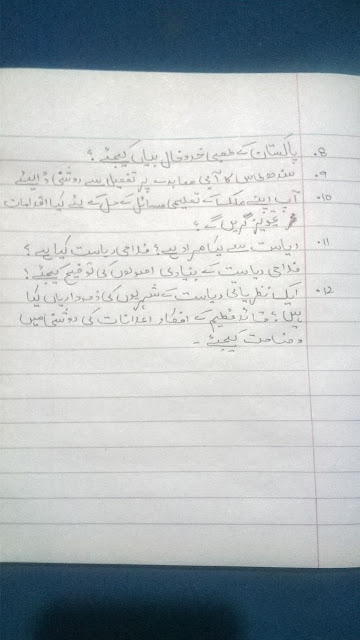 8. پاکستان کے طبعی خدوخال بیان کیجئے؟
9. سندھ طاس کا آبی معاہدے پر تفصیل سے روشنی ڈالیئے
10. آپ اپنے ملک کے تعلیمی مسائل کے حل کے لئے کیا اقدامات
تجویز کریں گے؟
11. ریاست سے کیا مراد ہے؟ فلاحی ریاست کیا ہے؟
فلاحی ریاست کے بنیادی اصولوں کی توضیح کیجئے؟
12. ایک نظریاتی ریاست کے شہریوں کی ذمہ داریاں کیا
ہیں؟ قائداعظم کے افکار اعلانات کی روشنی میں
وضاحت کیجئے۔